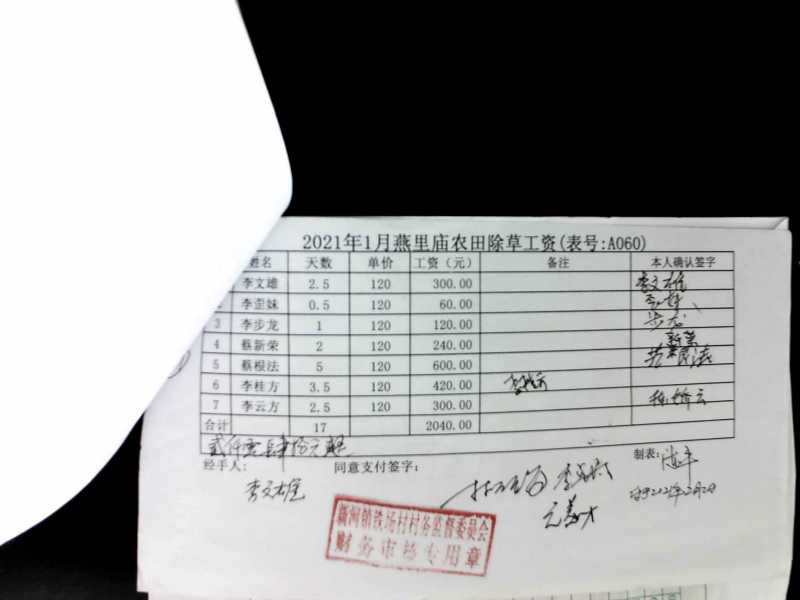 2021年1月燕里庙农田除草工资(表号:A060)
姓名 天数 单价 工资（元） 备注 本人确认签字
李文雄 2.5 120 300.00 李文雄
2 李歪妹 0.5 120 60.00
3 李步龙 1 120 120.00 步龙
4 蔡新荣 2 120 240.00 新荣
5 蔡根法 5 120 600.00
6 李桂方 3.5 120 420.00
7 李云方 2.5 120 300.00
合计 17 2040.00
贰仟零肆拾元整
经手人: 同意支付签字: 制表:
李文雄
新河镇铁场村村务监督委员会
财务市场专用章